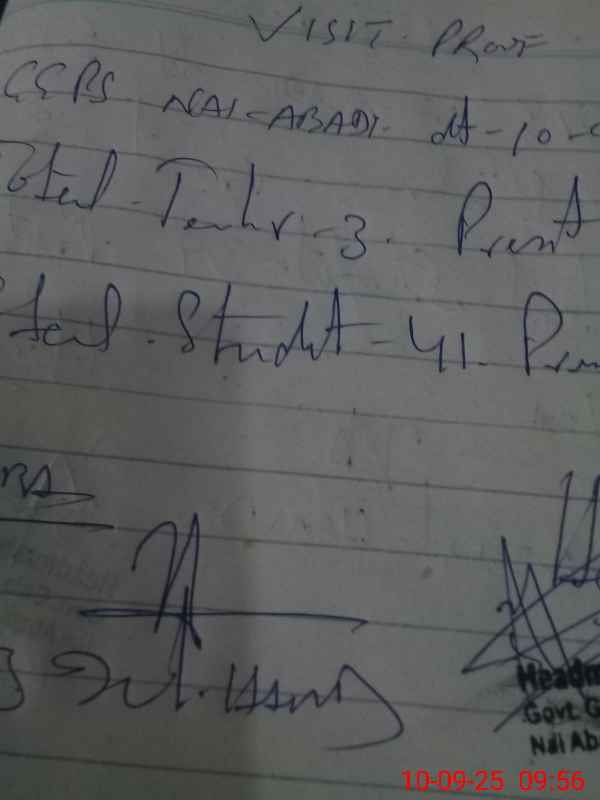 VISIT. PROOF
GGPS NAI-ABADI. dt-10-
Total Teachr-3. Present
Total. Studnt-41. Pres
Headm
Govt. G
Nai Ab
10-09-25 09:56